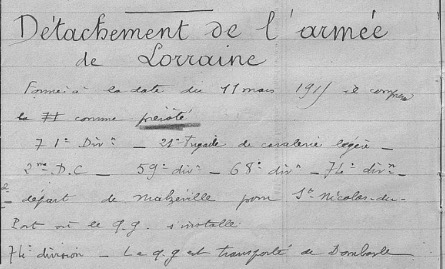 Détachement de l'armée
de Lorraine
Formé à la date du 11 mars 1915 il comprend
la # comme
71e Divon _ 21e brigade de cavalerie légère _
2me D.C _ 59e divon _ 68e divon _ 74e divon _
départ de Malzéville pour St Nicolas-du-
Port où le q.g. s'installe
74e division _ Le q.g est transporté de Dombasle